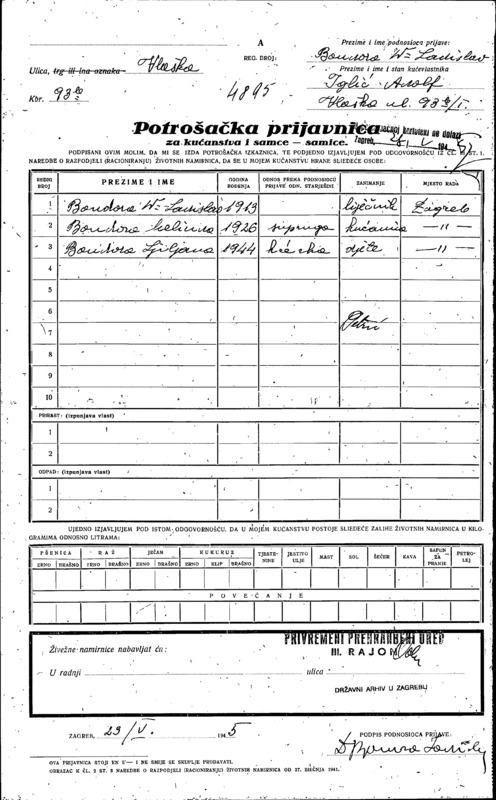 A
Prezime i ime podnosioca prijave:
Bondora Wn Ladislav
Ulica, trg ili ina oznaka Vlaška
REG. BROJ:
Prezime i ime i stan kućevlasnika
Iglić Adolf
Kbr. 93
4895
Vlaška ul. 93
Potrošačka prijavnica
za kućanstva i samce — samice.
Zagreb, 28 V 194
POTPISANI OVIM MOLIM, DA MI SE IZDA POTROŠAČKA ISKAZNICA, TE PODJEDNO IZJAVLJUJEM POD ODGOVORNOŠĆU IZ ČL. ST. 1.
NAREDBE O RAZPODJELI (RACIONIRANJU) ŽIVOTNIH NAMIRNICA, DA SE U MOJEM KUĆANSTVU HRANE SLIEDEĆE OSOBE:
REDNI BROJ PREZIME I IME GODINA ROĐENJA ODNOS PREMA PODNOSIOCU PRIJAVE ODN. STARJEŠINI ZANIMANJE MJESTO RADA
1 Bondora Wn Ladislav 1913 liječnik Zagreb
2 Bondora 1926 supruga kućanica —"—
3 Bondora Ljiljana 1944 kćerka djete —"—
4
5
6
7
8
9
10
PRIRAST: (izpunjava vlast)
1
2
ODPAD: (izpunjava vlast)
1
2
UJEDNO IZJAVLJUJEM POD ISTOM ODGOVORNOŠĆU, DA U MOJEM KUĆANSTVU POSTOJE SLIEDEĆE ZALIHE ŽIVOTNIH NAMIRNICA U KILO-
GRAMIMA ODNOSNO LITRAMA:
PŠENICA RAŽ JEČAM KUKURUZ TJESTENINE JESTIVO ULJE MAST SOL ŠEĆER KAVA SAPUN ZA PRANJE PETROLEJ
ZRNO BRAŠNO ZRNO BRAŠNO ZRNO BRAŠNO ZRNO KLIP BRAŠNO
POVEĆANJE
PRIVREMENI PREHRANBENI URED
III. RAJON
Živežne namirnice nabavljat ću:
U radnji
ulica
DRŽAVNI ARHIV U ZAGREBU
ZAGREB, 23/V. 1945
POTPIS PODNOSIOCA PRIJAVE:
OVA PRIJAVNICA STOJI KN U — I NE SMIJE SE SKUPLJE PRODAVATI.
OBRAZAC K ČL. 2 ST. 3 NAREDBE O RAZPODJELI (RACIONIRANJU) ŽIVOTNIH NAMIRNICA OD 27. SIEČNJA 1941.